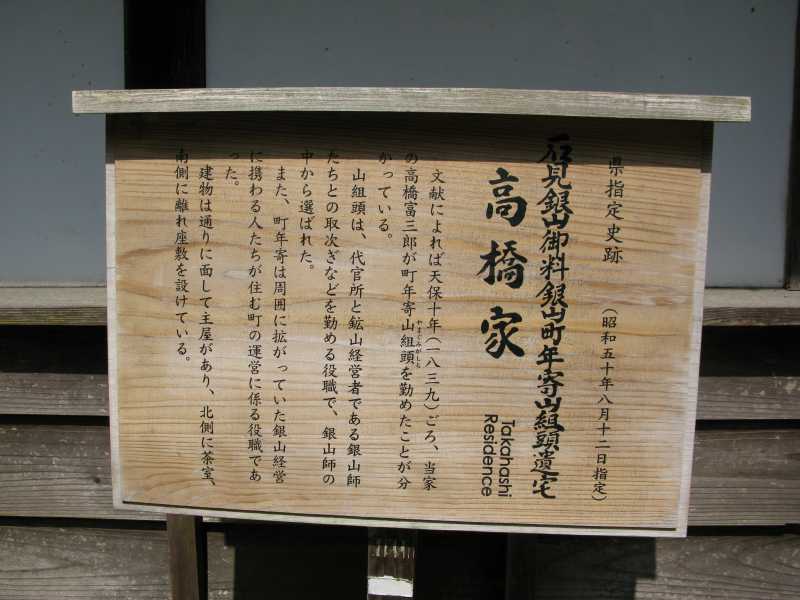 県指定史跡　（昭和五十年八月十二日指定）
石見銀山御料銀山町年寄山組頭遺宅
高橋家
Takahashi
Residence
文献によれば天保十年（一八三九）ごろ、当家
の高橋富三郎が町年寄山組頭を勤めたことが分
やまくみがしら
かっている。
山組頭は、代官所と鉱山経営者である銀山師
たちとの取次ぎなどを勤める役職で、銀山師の
中から選ばれた。
また、町年寄は周囲に拡がっていた銀山経営
に携わる人たちが住む町の運営に係る役職であ
った。
建物は通りに面して主屋があり、北側に茶室、
南側に離れ座敷を設けている。